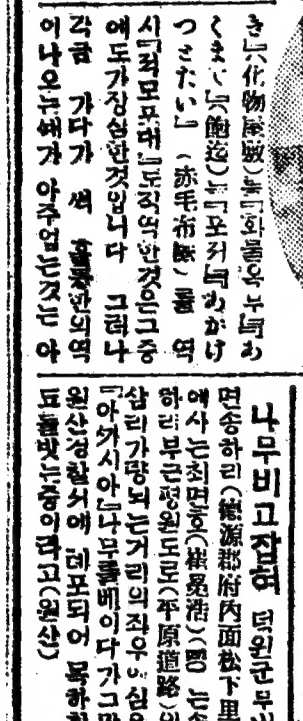 き』(化物屋敷)는『화물옥부』あ
くまで』(飽迄)는『포저』あかげ
つとたい』(赤毛布隊)를 역
시『적모포대』도직역한것은그중
에도가장심한것입니다 그러나
각금 가다가 썩 훌륭한의역
이나오는때가 아주업는것는 아
나무비고잡혀 덕원군부
면송하리(德源郡府內面松下里
에사는최면호(崔冕浩)는송
하리부근평원도로(平原道路)
삼리가량되는거리의좌우에심은
『아까시아』나무를베이다가그만
원산경찰서에 톄포되어 목하
됴를밧는중이라고(원산)